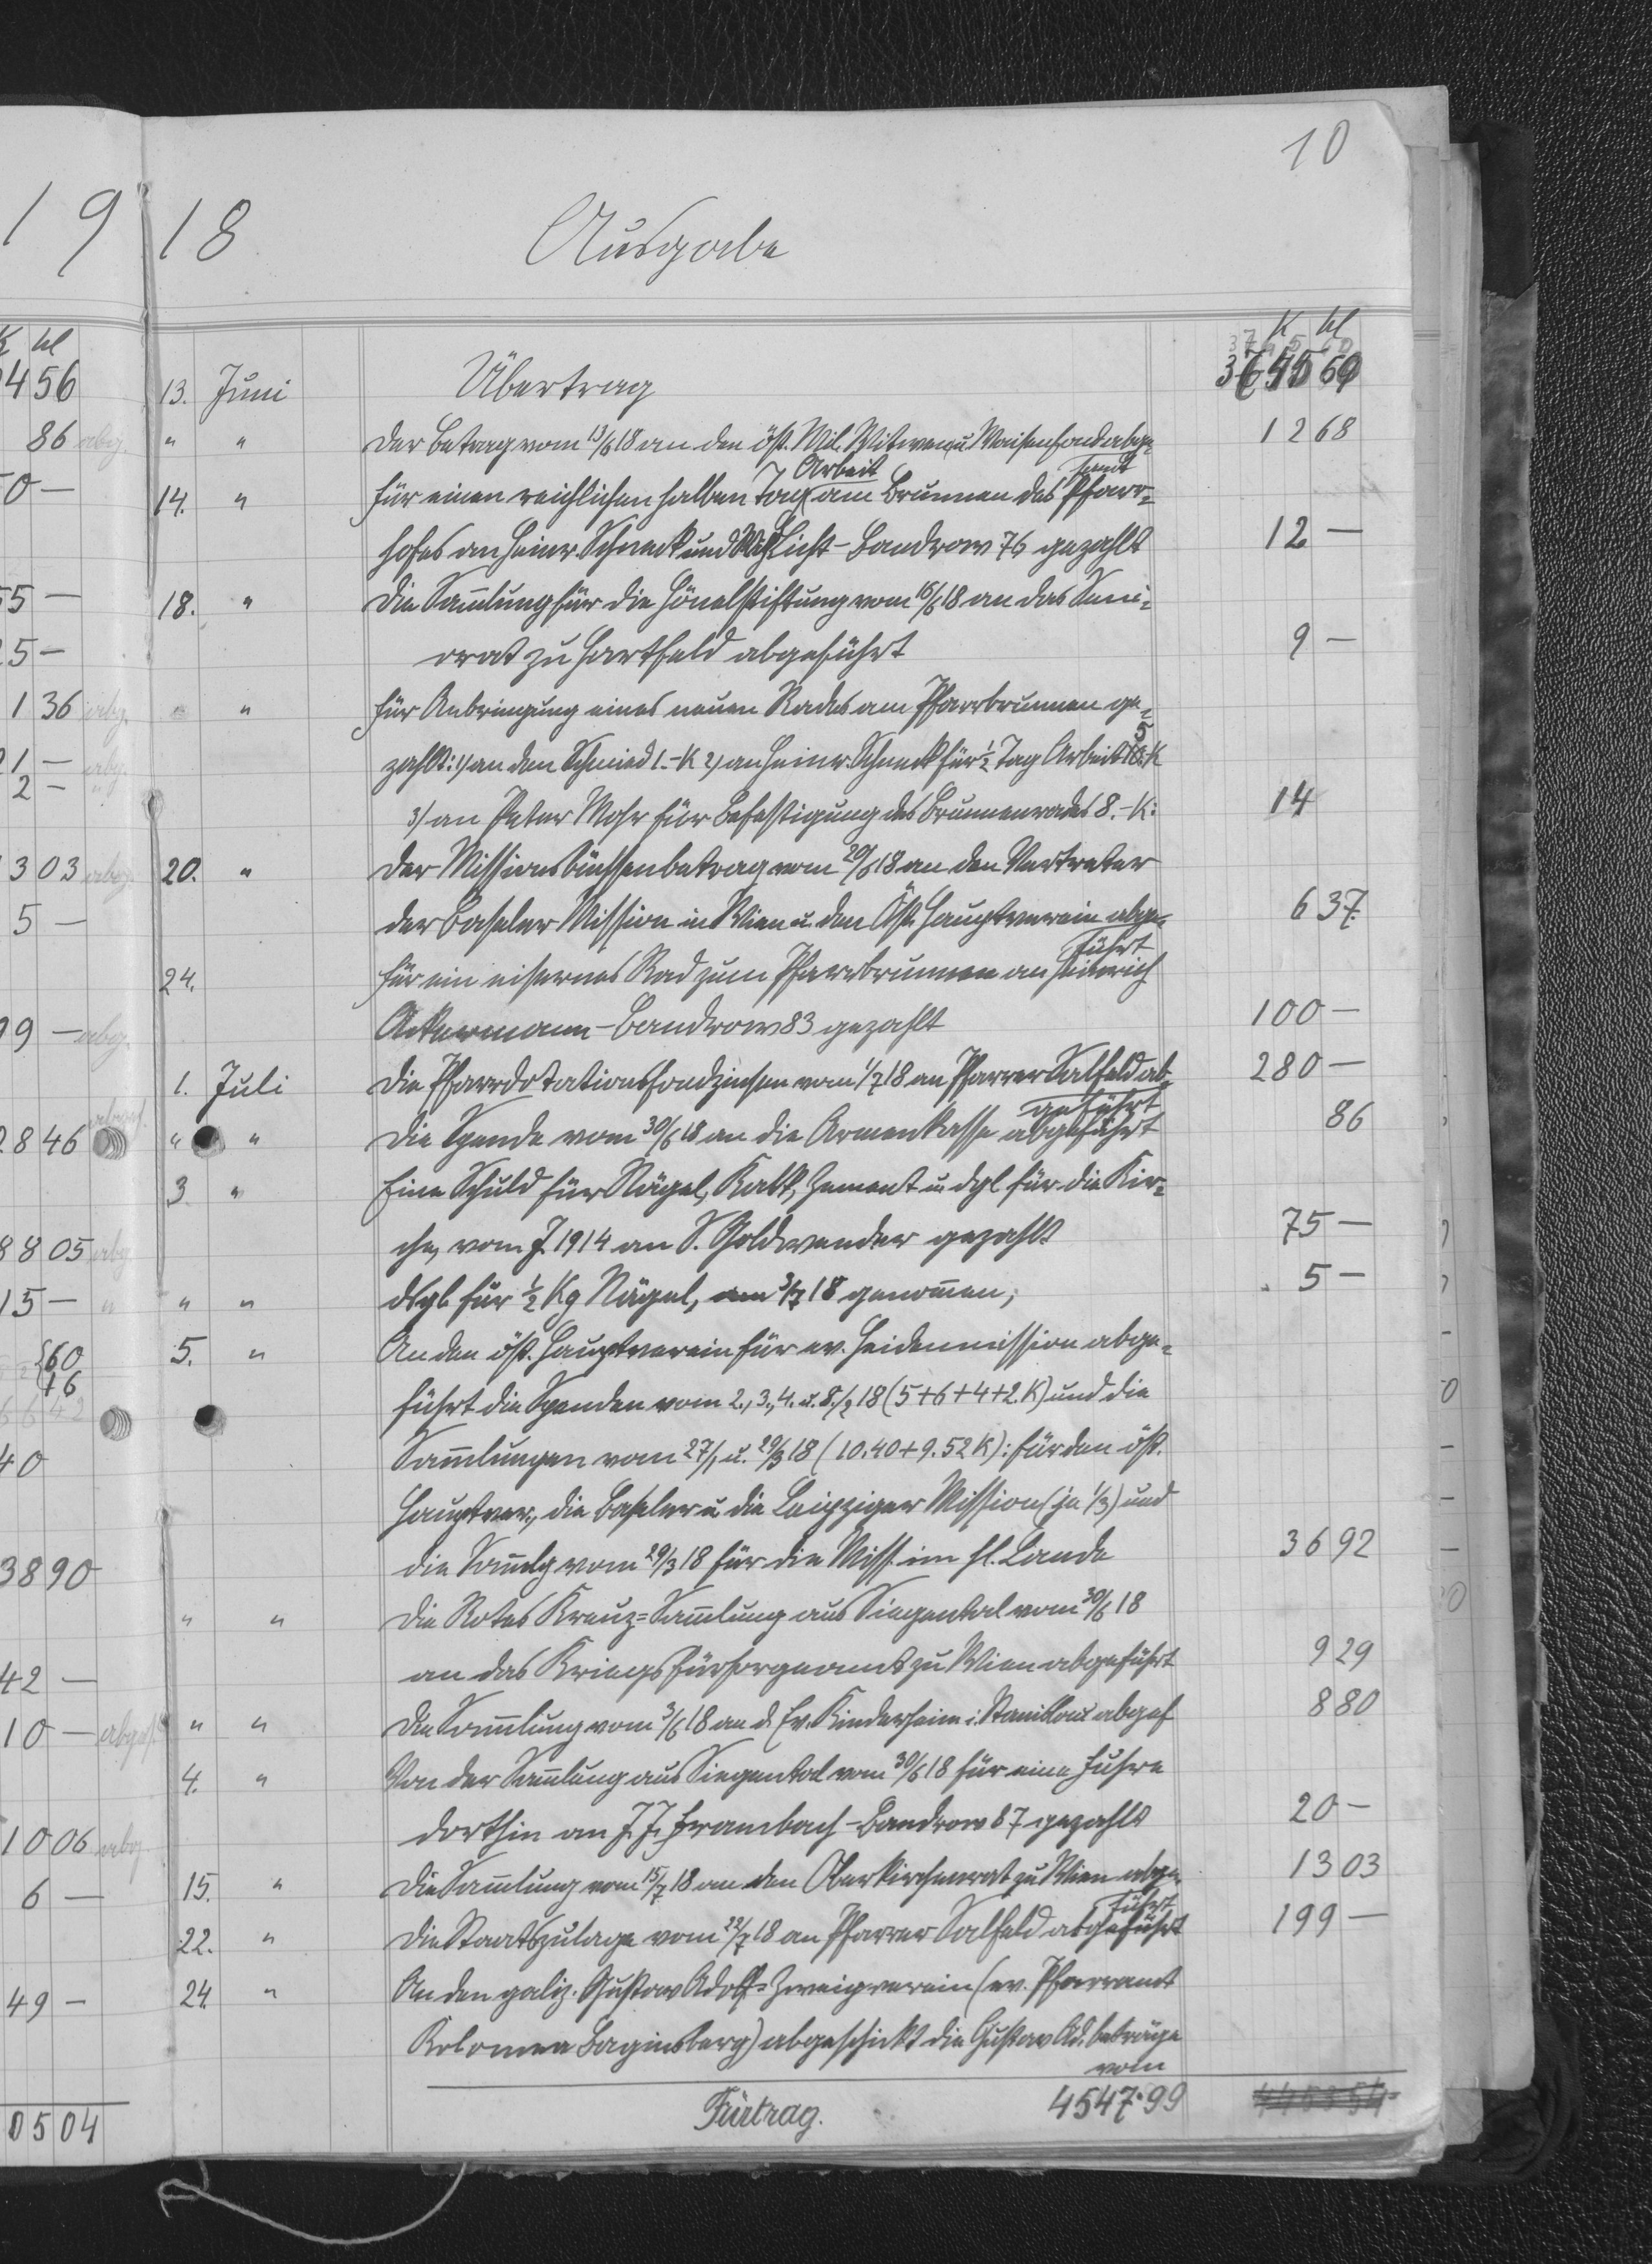 10
19 18 Ausgabe
K hl
K hl
456
13. Juni Übertrag 3745 60
86 abg.
" " Der Betrag vom 13/6 18 an den öst. Mil. Witwen u. Waisenfond abge- 1268
sandt
0 —
Arbeit
14. " Für einen reichlichen halben Tag am Brunnen des Pfarr-
hofes an Heinr. Schneck und Licht - Bandrow 76 gezahlt 12 —
55 —
18. " Die Sam̅lung für die Hönelstiftung vom 16/6 18 an das Seni-
25 —
orat zu Hartfeld abgeführt 9 —
136 abg.
" Für Anbringung eines neuen Rades am Pfarrbrunnen ge-
21 — abg.
zahlt: 1) an den Schmied 1.-K 2) an Heinr. Schneck für ½ Tag Arbeit 5 K
2 — "
3) an Peter Mohr für Befestigung des Brunnenrades 8.-K: 14
303 abg.
20. " Der Missionsbüchsenbetrag vom 20/6 18 an den Vertreter
5 —
der Baseler Mission in Wien u. den Öst. Hauptverein abge- 637.
führt
24. Für ein eisernes Rad zum Pfarrbrunnen an Heinrich
99 — abg.
Ackermann - Bandrow 83 gezahlt 100 —
1. Juli Die Pfarrdotationsfondzinsen vom 1/7 18 an Pfarrer Salfeld ab- 280 —
geführt
2846
" " Die Spende vom 30/6 18 an die Armenkasse abgeführt 86
3 " Eine Schuld für Nägel, Kalk, Zement u. dgl. für die Kir-
8805 abg
che, vom J. 1914 an S. Goldwender gezahlt 75 —
15 — "
" " dsgl. für ½ Kg Nägel, am 3/7 18 genom̅en; 5 —
60
5. " An den öst. Hauptverein für ev. Heidenmission abge-
16
6642
führt die Spenden vom 2., 3., 4. u. 8./2 18 (5+6+4+2.K) und die
40
Sam̅lungen vom 27/1 u. 29/3 18 (10.40+9.52 K): für den öst.
Hauptver., die Baseler u. die Leipziger Mission (je 1/3) und
3890
die Sam̅lg vom 29/3 18 für die Miss. im hl. Lande 3692
" " Die Rotes Kreuz-Sam̅lung aus Siegental vom 30/6 18
42 —
an das Kriegsfürsorgeamt zu Wien abgeführt 929
10 — abgef.
" " Die Sam̅lung vom 3/6 18 an d. Ev. Kinderheim i. Stanislau abgef 880
4. " Von der Sam̅lung aus Siegental vom 30/6 18 für eine Fuhre
1006 abg
dorthin an J. J. Frambach - Bandrow 87 gezahlt 20 —
6 —
15. " Die Sam̅lung vom 15/7 18 an den Oberkirchenrat zu Wien abge- 1303
führt
22. " Die Staatszulage vom 22/7 18 an Pfarrer Salfeld abgeführt 199 —
49 —
24. " An den galiz. Gustav Adolf-Zweigverein (ev. Pfarramt
Kolomea Baginsberg) abgeschickt die Gustav Ad. beträge
vom
0504
Fürtrag. 4547·99 445354